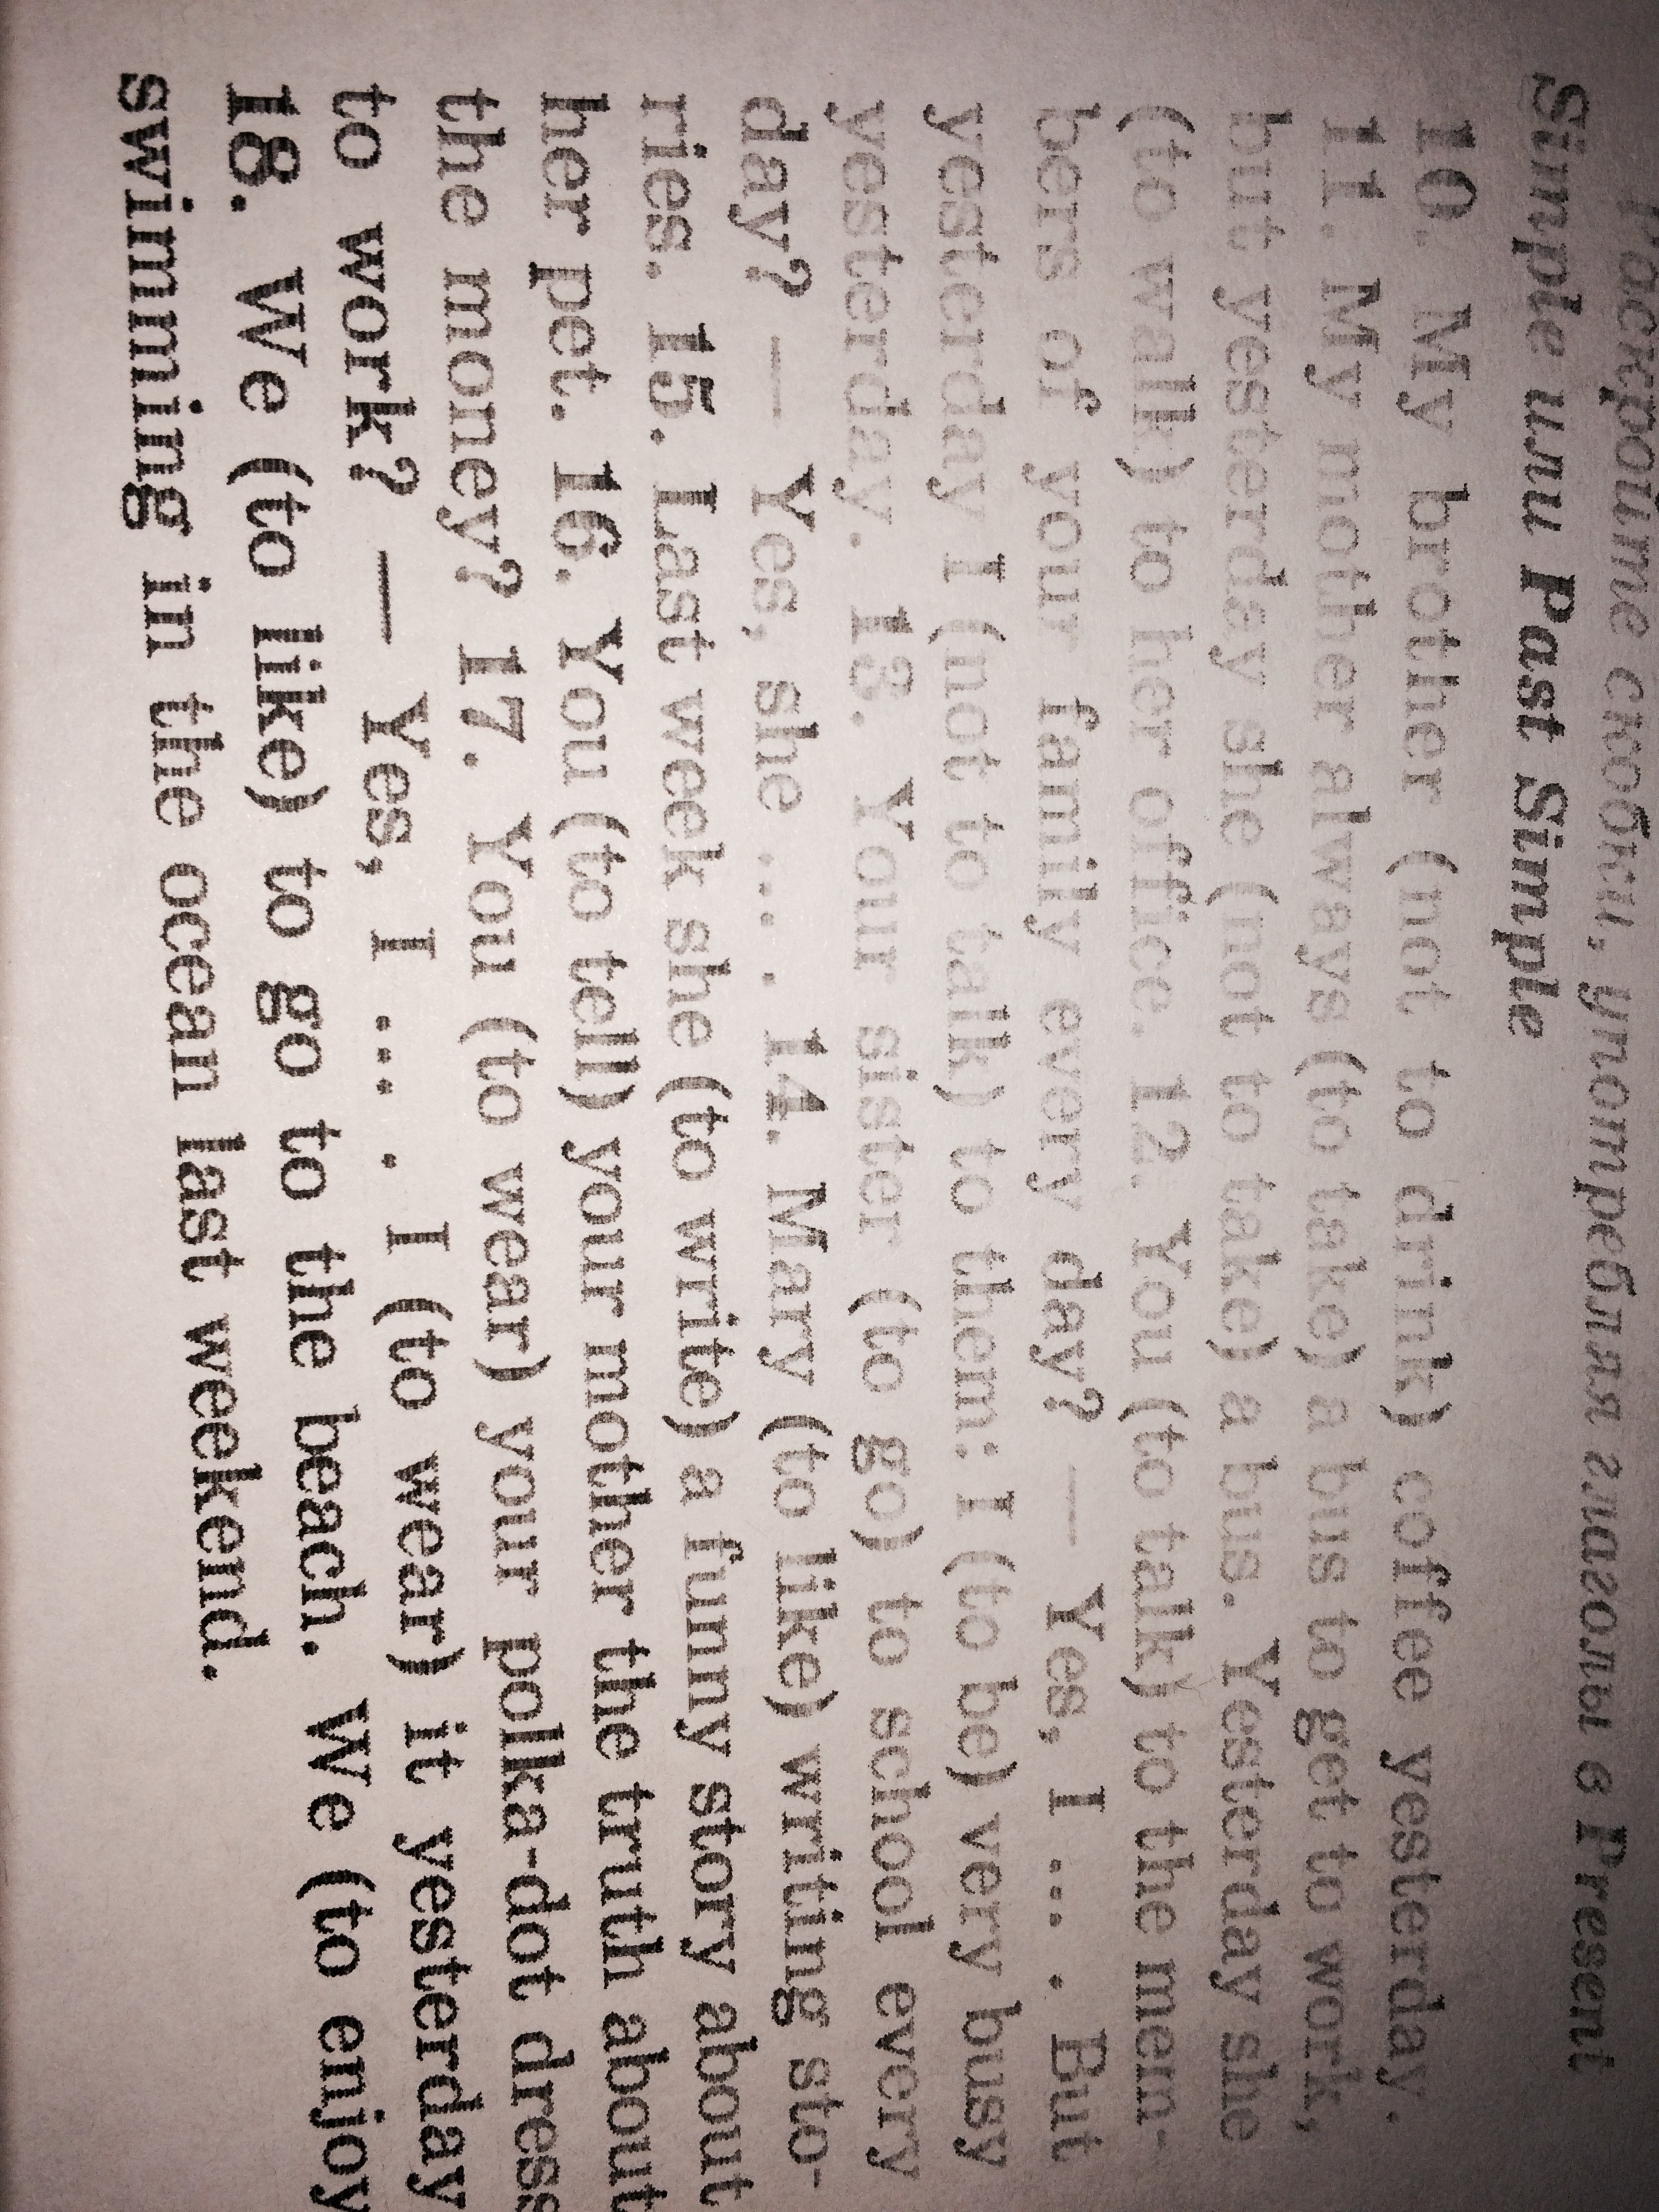 Раскройте скобки, употребляя глаголы в Present
Simple или Past Simple
10. My brother (not to drink) coffee yesterday.
11. My mother always (to take) a bus to get to work,
but yesterday she (not to take) a bus. Yesterday she
(to walk) to her office. 12. You (to talk) to the mem-
bers of your family every day? — Yes, I ... . But
yesterday I (not to talk) to them: I (to be) very busy
yesterday. 13. Your sister (to go) to school every
day? — Yes, she ... . 14. Mary (to like) writing sto-
ries. 15. Last week she (to write) a funny story about
her pet. 16. You (to tell) your mother the truth about
the money? 17. You (to wear) your polka-dot dress
to work? — Yes, I ... . I (to wear) it yesterday
18. We (to like) to go to the beach. We (to enjoy
swimming in the ocean last weekend.